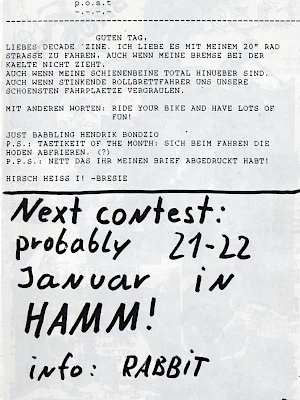 p.o.s.t
=.=.=.=
GUTEN TAG,
LIEBES DECADE 'ZINE. ICH LIEBE ES MIT MEINEM 20" RAD
STRASSE ZU FAHREN, AUCH WENN MEINE BREMSE BEI DER
KAELTE NICHT ZIEHT.
AUCH WENN MEINE SCHIENENBEINE TOTAL HINUEBER SIND.
AUCH WENN STINKENDE ROLLBRETTFAHRER UNS UNSERE
SCHOENSTEN FAHRPLAETZE VERGRAULEN.
MIT ANDEREN WORTEN: RIDE YOUR BIKE AND HAVE LOTS OF
FUN!
JUST BABBLING HENDRIK BONDZIO
P.S.: TAETIKEIT OF THE MONTH: SICH BEIM FAHREN DIE
HODEN ABFRIEREN. (?)
P.P.S.: NETT DAS IHR MEINEN BRIEF ABGEDRUCKT HABT!
HIRSCH HEISS I! -BRESIE
Next contest:
probably 21-22
Januar in
HAMM!
info: RABBiT